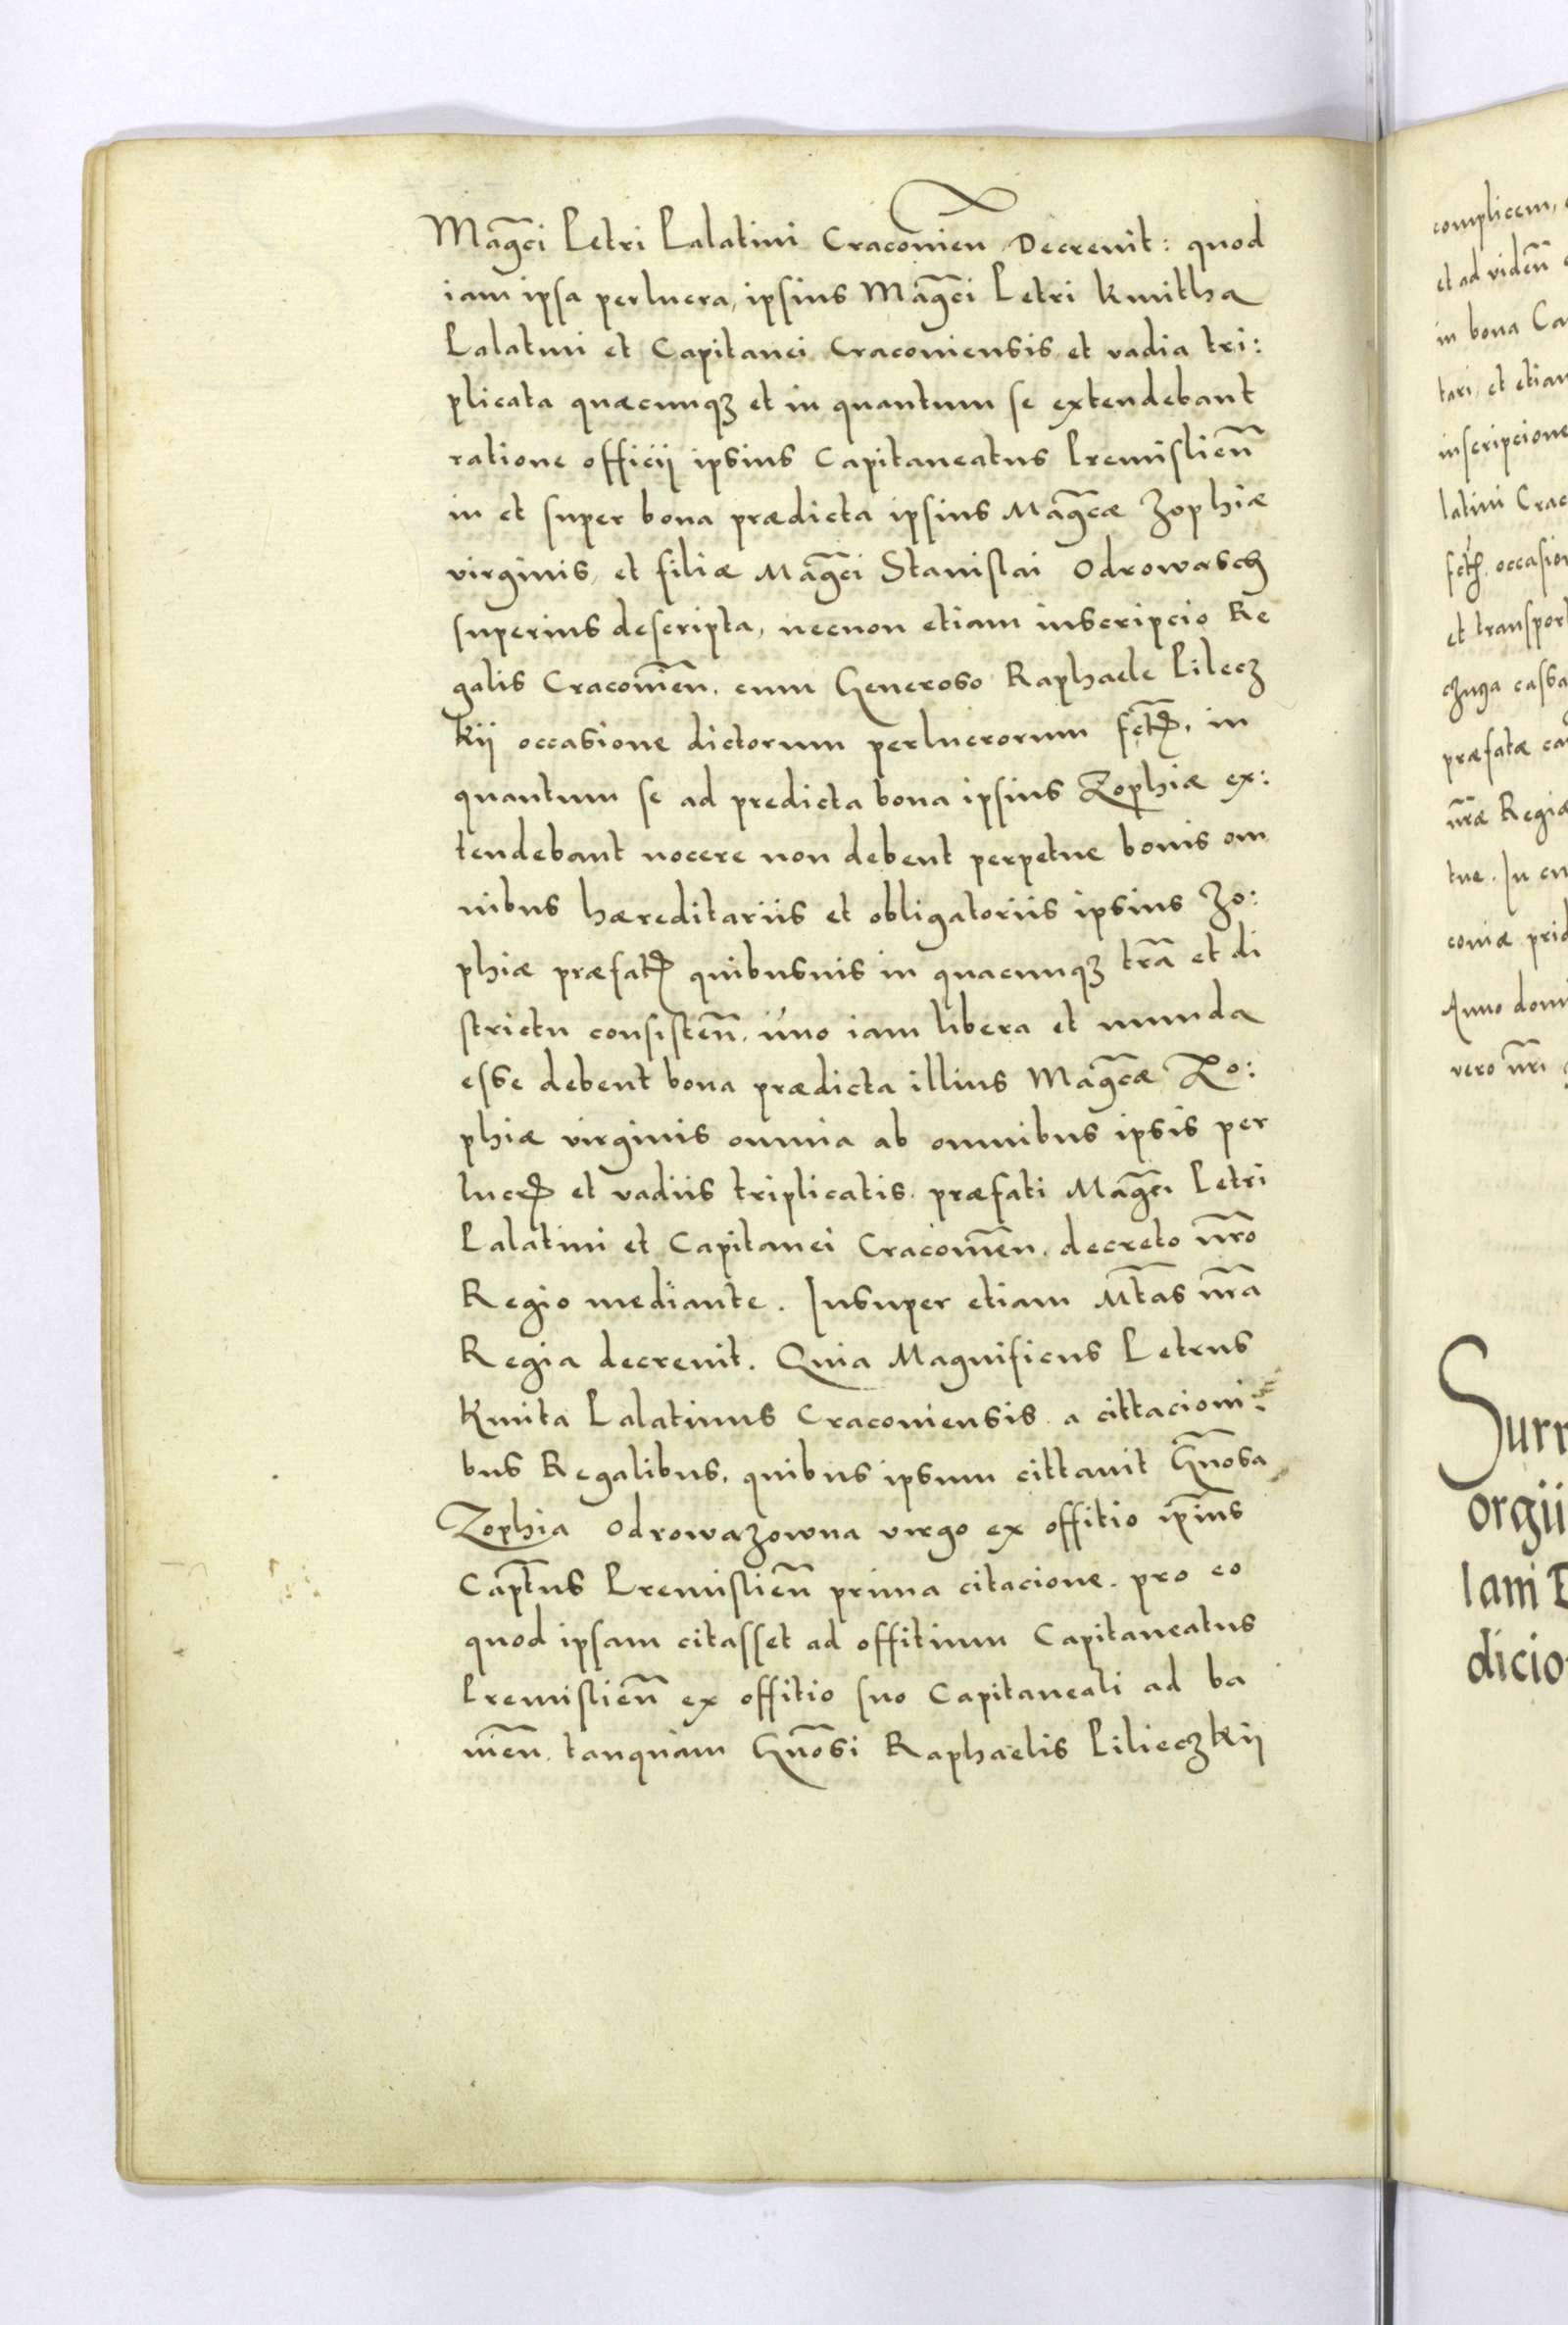 Mag̃ci Petri Palatini Cracovien̄ Decrevit: quod
iam ipsa perlucra, ipsius Mag̃ci Petri Kmitha
Palatini et Capitanei Cracoviensis et vadia tri:
plicata quæcunqꝫ et in quantum se extendebant
ratione officii ipsius Capitaneatus Premislien̄
in et super bona prædicta ipsius Mag̃cæ Zophiæ
virginis, et filiæ Mag̃ci Stanislai Odrowasch
superius descripta, necnon etiam inscripcio Re
galis Cracovien̄. cum Generoso Raphaele Pilecz
kii occasione dictorum perlucrorum fct̃ꝭ. in
quantum se ad predicta bona ipsius Zophiæ ex:
tendebant nocere non debent perpetue bonis om
nibus hæreditariis et obligatoriis ipsius Zo:
phiæ præfatꝭ quibusvis in quacunqꝫ tr̃a et di
strictu consisten̄. imo iam libera et munda
esse debent bona prædicta illius Mag̃cæ Zo:
phiæ virginis omnia ab omnibus ipsis per
lucrꝭ et vadiis triplicatis. præfati Mag̃ci Petri
Palatini et Capitanei Cracovien̄. decreto nr̃o
Regio mediante. Insuper etiam Mt̃as nr̃a
Regia decrevit. Quia Magnificus Petrus
Kmita Palatinus Cracoviensis a cittacioni:
bus Regalibus, quibus ipsum cittavit Gn̄osa
Zophia Odrowazowna virgo ex offitio ip̃ius
Capt̃us Premislien̄ prima citacione. pro eo
quod ipsam citasset ad offitium Capitaneatus
Premislien̄ ex offitio suo Capitaneali ad ba
nien̄. tanquam Gn̄osi Raphaelis Pilieczkii
complicem,
et ad viden̄
in bona
tari, et
inscripcione
latini
occasion
et transpor
cassa
præfatæ
nr̃æ Regiæ
tue. In
coniæ
Anno
vero nr̃i
orgii
lani
dicio